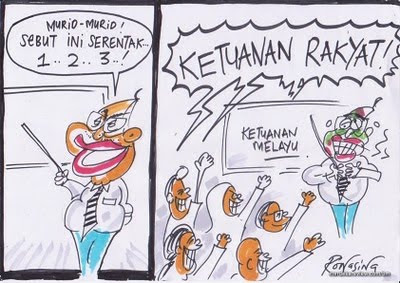 MURID-MURID!
SEBUT INI SERENTAK..
1..2..3..!
KETUANAN RAKYAT!
KETUANAN
MELAYU
RONASINA